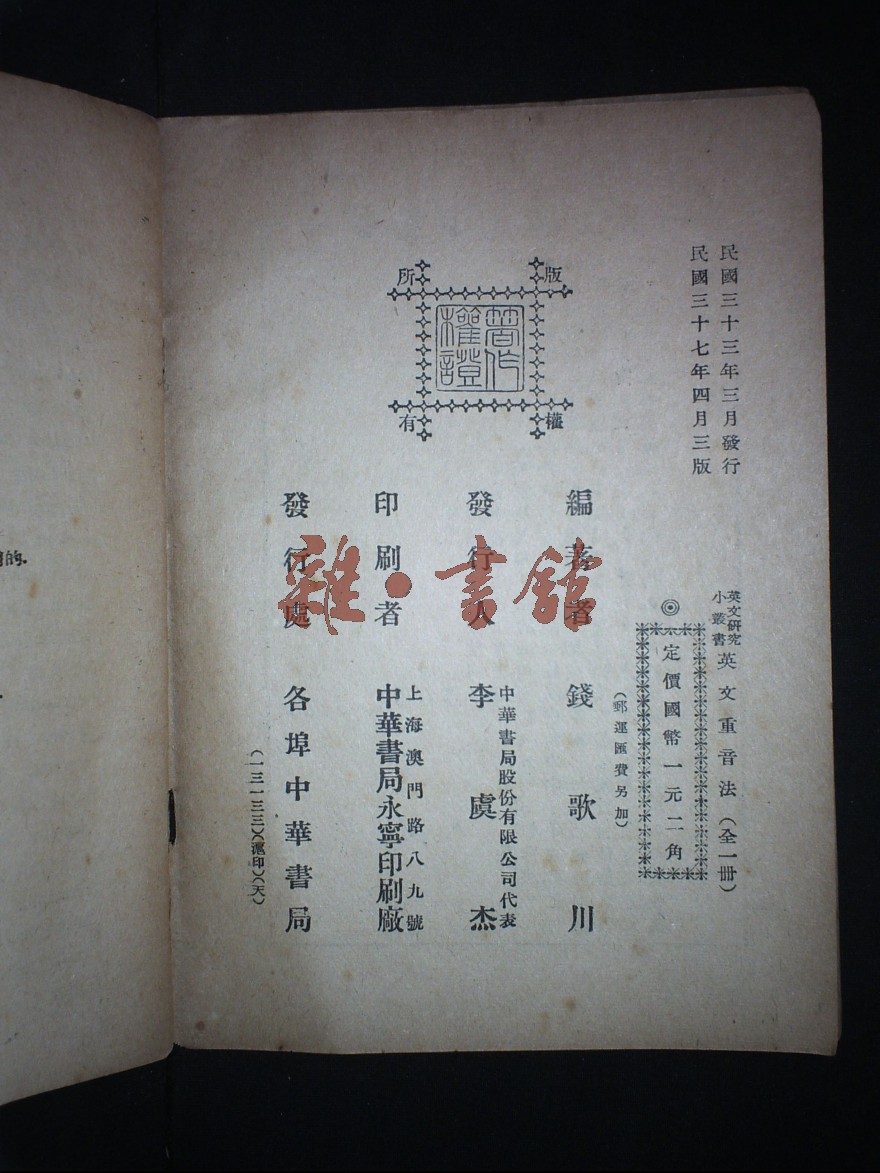 民國三十三年三月發行
民國三十七年四月三版
英文研究
小叢書
英文重音法（全一冊）
◎定價國幣一元二角
（郵運匯費另加）
版權所有
著作權證
編著者 錢歌川
發行人 中華書局股份有限公司代表
李虞杰
印刷者 上海澳門路八九號
中華書局永寧印刷廠
發行處 各埠中華書局
（一三一三三）（滬印）（天）
的.
雜·書館